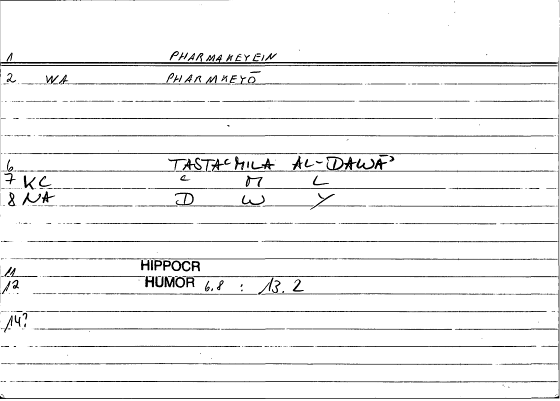 1 PHARMAKEYEIN
2 WA PHARMKEYŌ
6 TASTAᶜMILA AL-DAWĀʾ
7 KC ᶜ M L
8 NA D W Y
11 HIPPOCR
12 HUMOR 6.8 : 13.2
14?